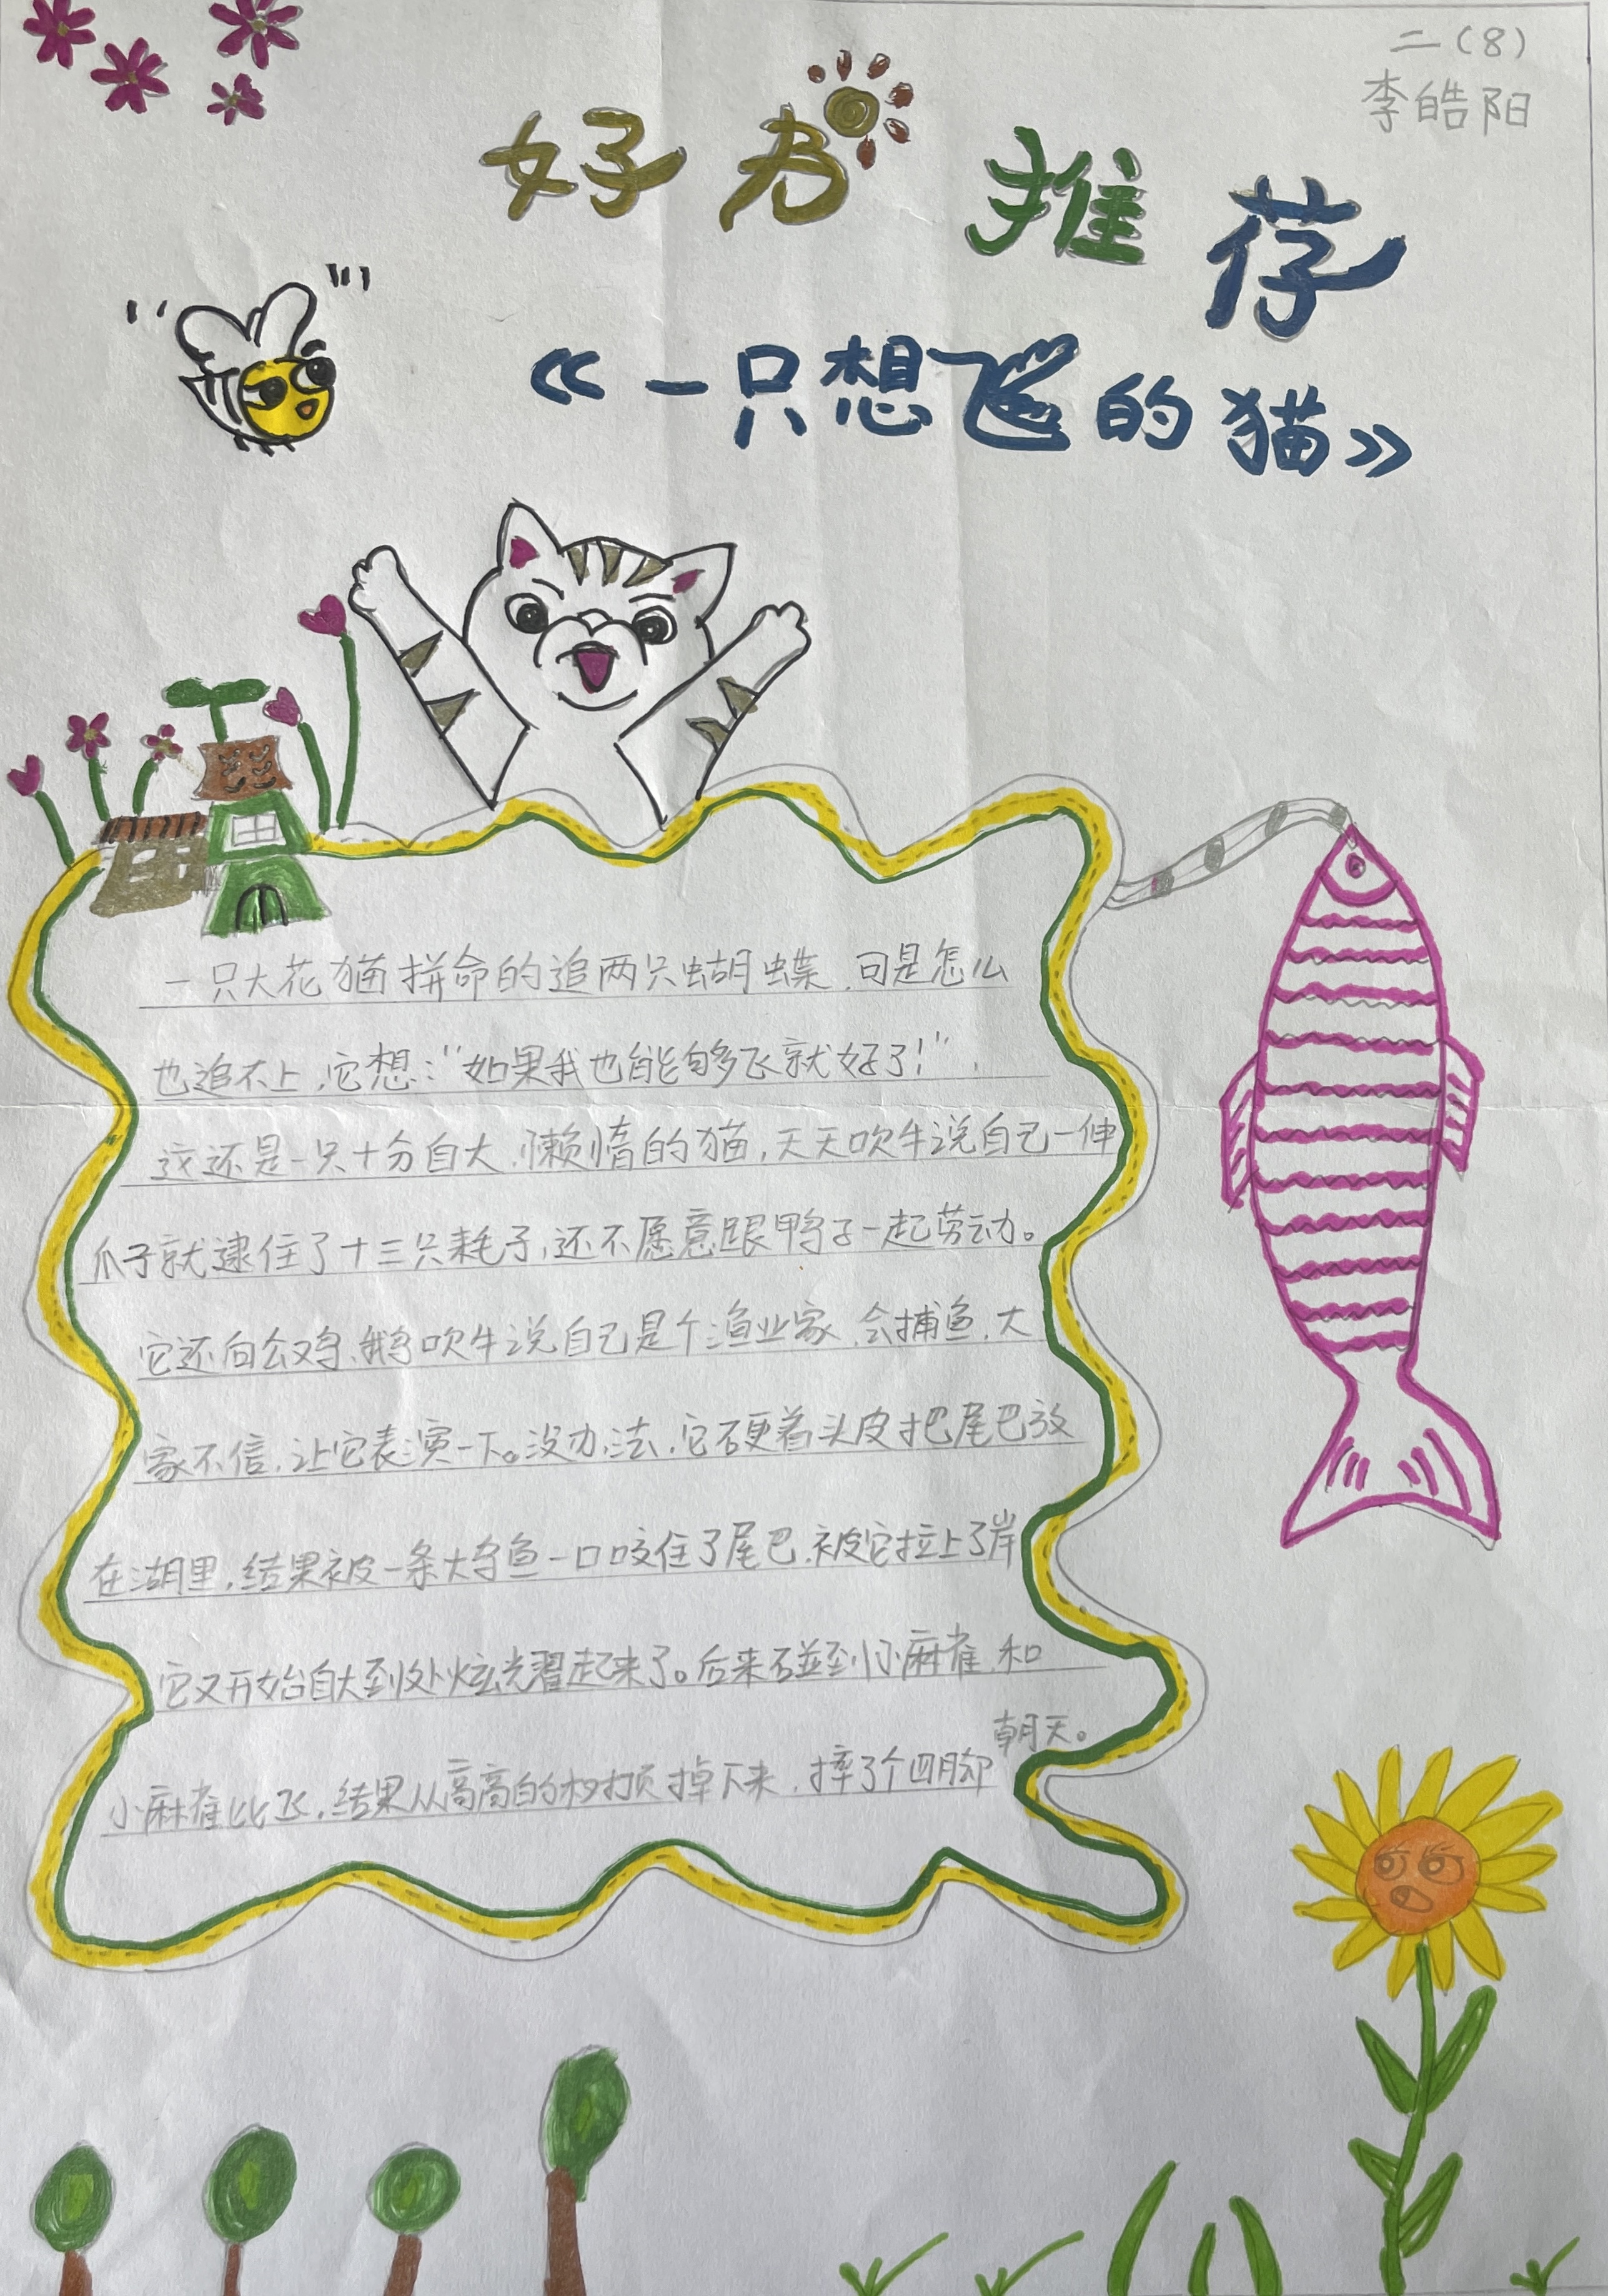 二（8）
李皓阳
好书推荐
《一只想飞的猫》
一只大花猫拼命的追两只蝴蝶，可是怎么
也追不上，它想："如果我也能够飞就好了！"，
这还是一只十分自大、懒惰的猫，天天吹牛说自己一伸
爪子就逮住了十三只耗子，还不愿意跟鸭子一起劳动。
它还向公鸡、鹅吹牛说自己是个渔业家，会捕鱼，大
家不信，让它表演一下。没办法，它硬着头皮把尾巴放
在湖里，结果被一条大鱼一口咬住了尾巴，被它拉上了岸
它又开始自大到处炫耀起来了。后来碰到小麻雀，和
小麻雀比飞，结果从高高的树顶掉下来，摔了个四脚
朝天。